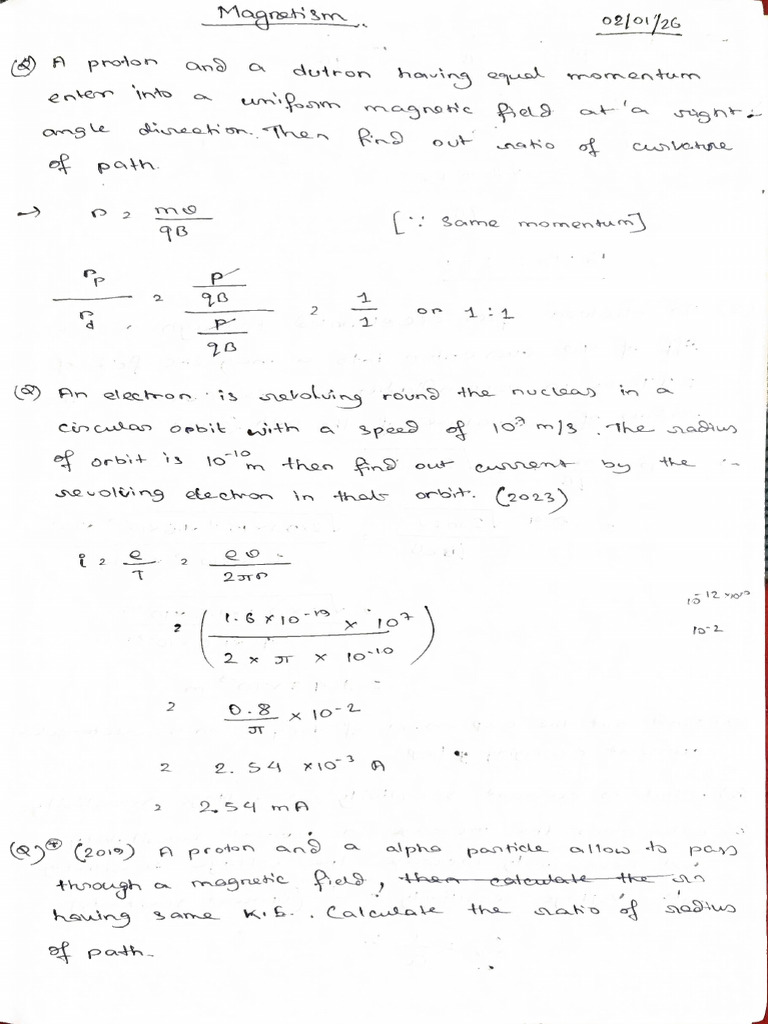 Magnetism
02/01/26
(Q) A proton and a dutron having equal momentum
enter into a uniform magnetic field at a right
angle direction. Then find out ratio of curvature
of path.
→ r = mv/qB [∵ same momentum]
rp/rd = (p/qB)/(p/qB) = 1/1 or 1:1
(Q) An electron is revolving round the nucleas in a
circular orbit with a speed of 10⁷ m/s. The radius
of orbit is 10⁻¹⁰ m then find out current by the
revolving electron in that orbit. (2023)
i = e/T = ev/2πr
= (1.6 × 10⁻¹⁹ × 10⁷ / 2 × π × 10⁻¹⁰)
10⁻¹² × 10¹⁰
10⁻²
= 0.8/π × 10⁻²
= 2.54 × 10⁻³ A
= 2.54 mA
(Q) (2019) A proton and a alpha particle allow to pass
through a magnetic field, then calculate the
having same K.E. . Calculate the ratio of radius
of path.